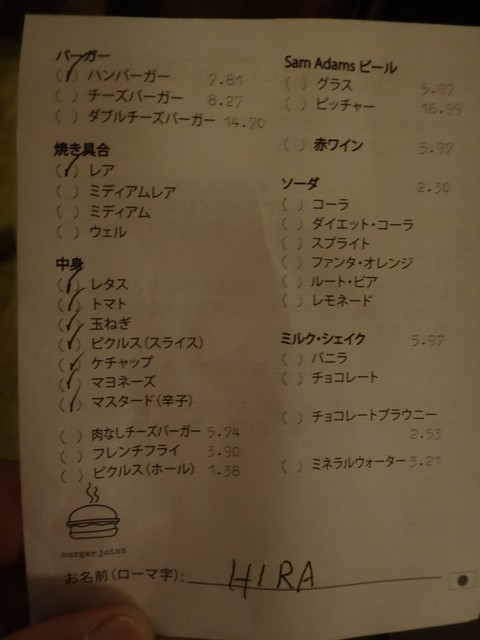 バーガー
(✓) ハンバーガー 7.81
( ) チーズバーガー 8.27
( ) ダブルチーズバーガー 14.70
焼き具合
(✓) レア
( ) ミディアムレア
( ) ミディアム
( ) ウェル
中身
(✓) レタス
(✓) トマト
(✓) 玉ねぎ
(✓) ピクルス(スライス)
(✓) ケチャップ
(✓) マヨネーズ
(✓) マスタード(辛子)
( ) 肉なしチーズバーガー 5.74
( ) フレンチフライ 3.90
( ) ピクルス(ホール) 1.38
Sam Adams ビール
( ) グラス 5.97
( ) ピッチャー 16.99
( ) 赤ワイン 5.97
ソーダ 2.30
( ) コーラ
( ) ダイエット・コーラ
( ) スプライト
( ) ファンタ・オレンジ
( ) ルート・ビア
( ) レモネード
ミルク・シェイク 5.97
( ) バニラ
( ) チョコレート
( ) チョコレートブラウニー
2.53
( ) ミネラルウォーター 3.21
burger joint
お名前(ローマ字): HIRA